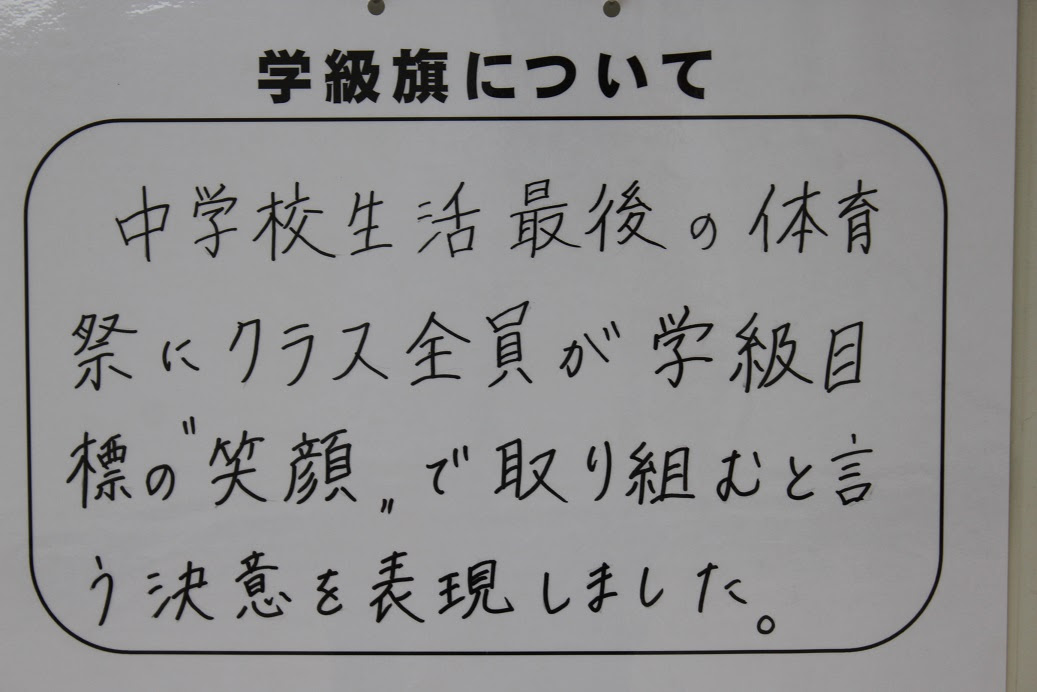 学級旗について
中学校生活最後の体育
祭にクラス全員が学級目
標の〝笑顔〟で取り組むと言
う決意を表現しました。